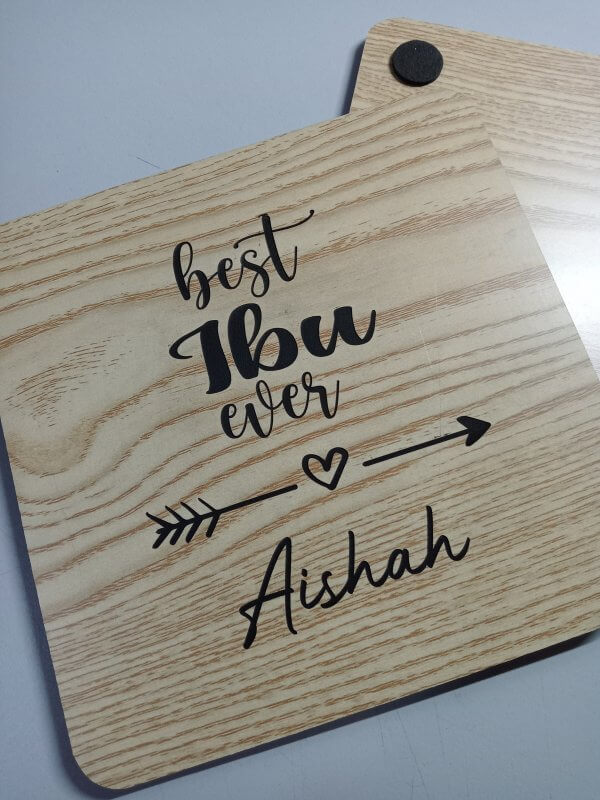 best
Ibu
ever
Aishah